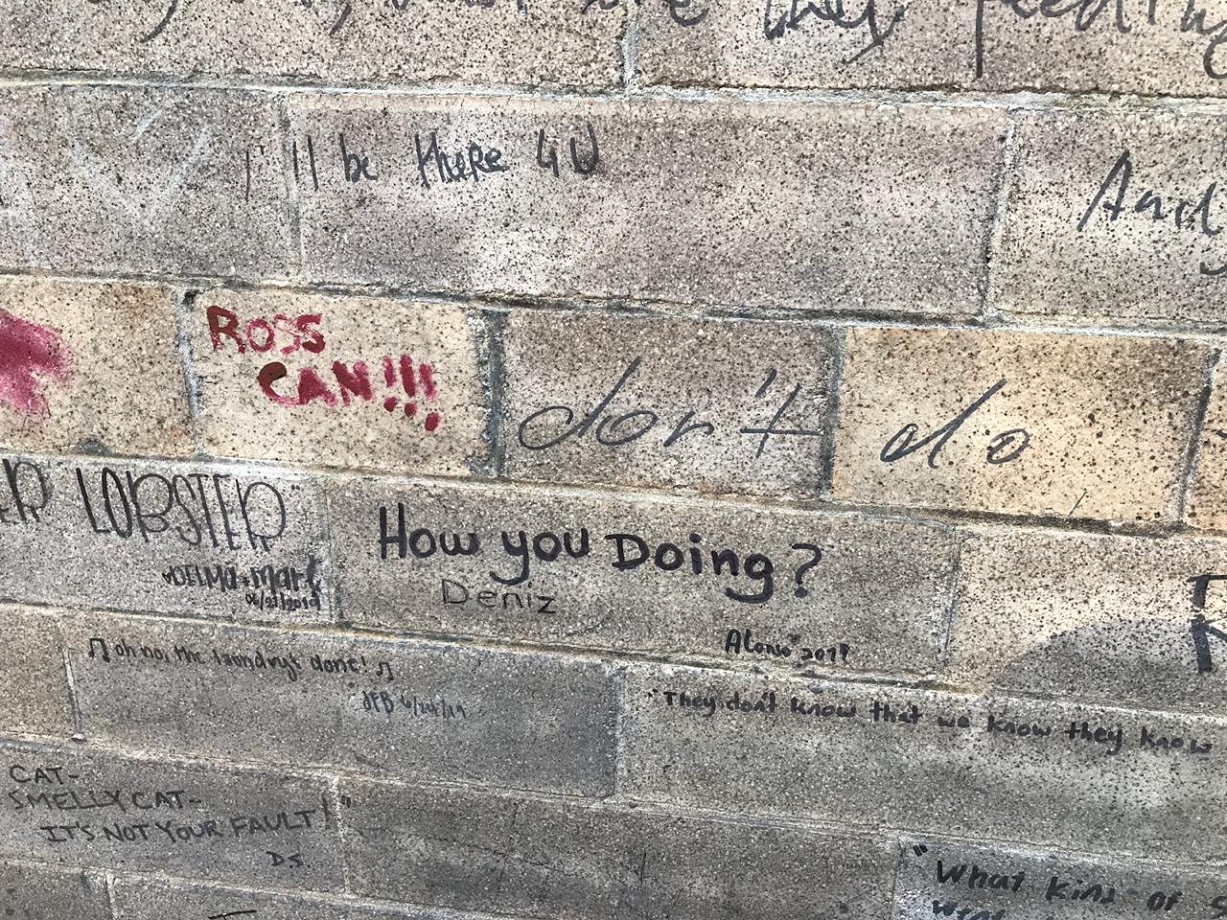 they feeding
I'll be there 4 U
And
ROSS
CAN!!!
don't do
LOBSTER"
How you Doing?
DELMA + Mark
06/27/2019
Deniz
Alonso 2019
♫ oh no, the laundry's done! ♫
JFB 6/24/19
"They don't know that we know they know
CAT-
SMELLY CAT-
IT'S NOT YOUR FAULT!"
DS
"What kind of